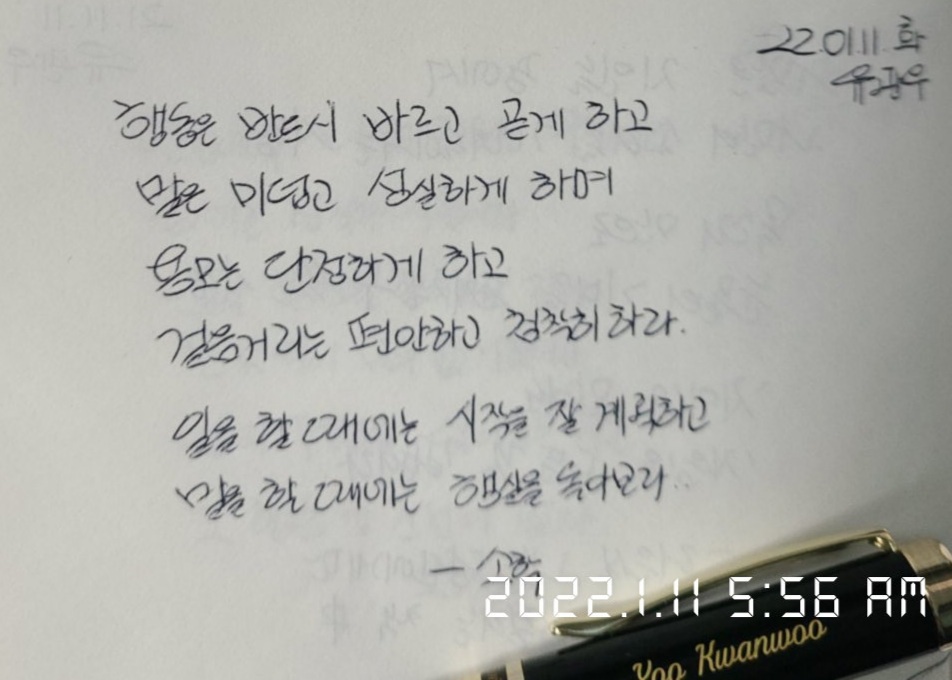 22.01.11. 화
유광우
행동은 반드시 바르고 곧게 하고
말은 미덥고 성실하게 하며
용모는 단정하게 하고
걸음거리는 편안하고 침착히하라.
일을 할 때에는 시작을 잘 계획하고
말을 할 때에는 행실을 돌아보라..
- 소학
2022.1.11 5:56 AM
Yoo Kwanwoo